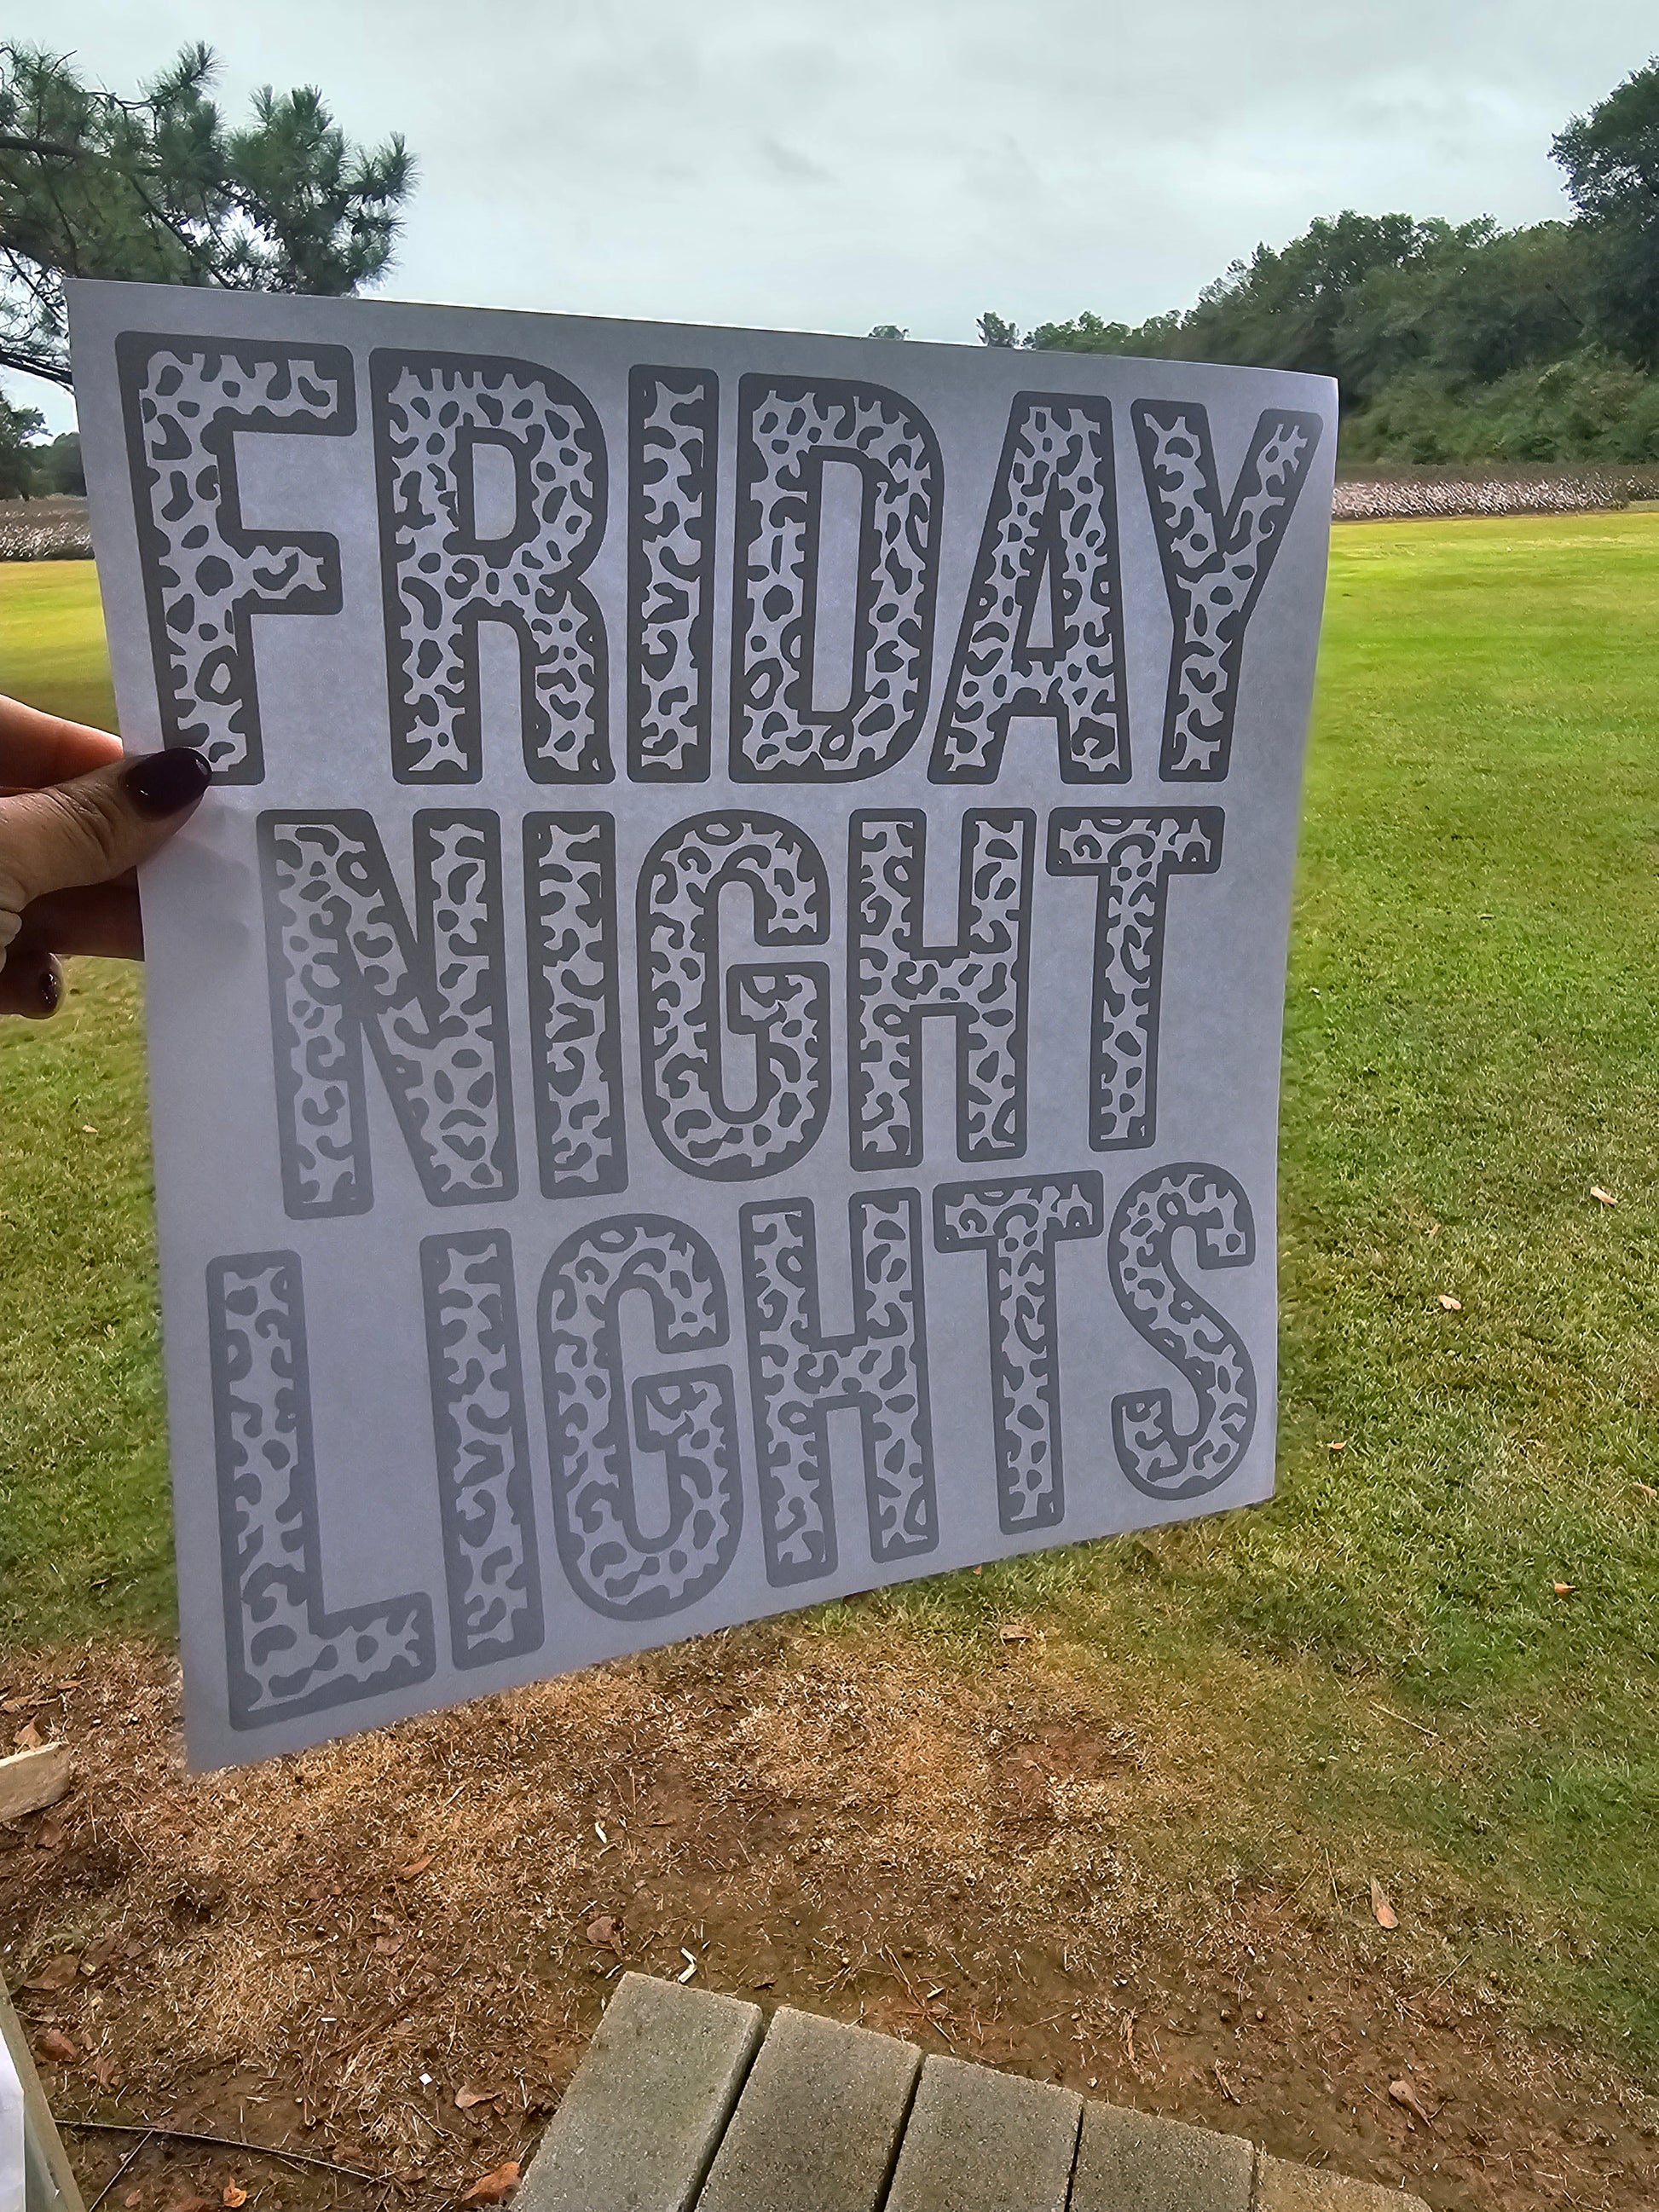 FRIDAY
NIGHT
LIGHTS